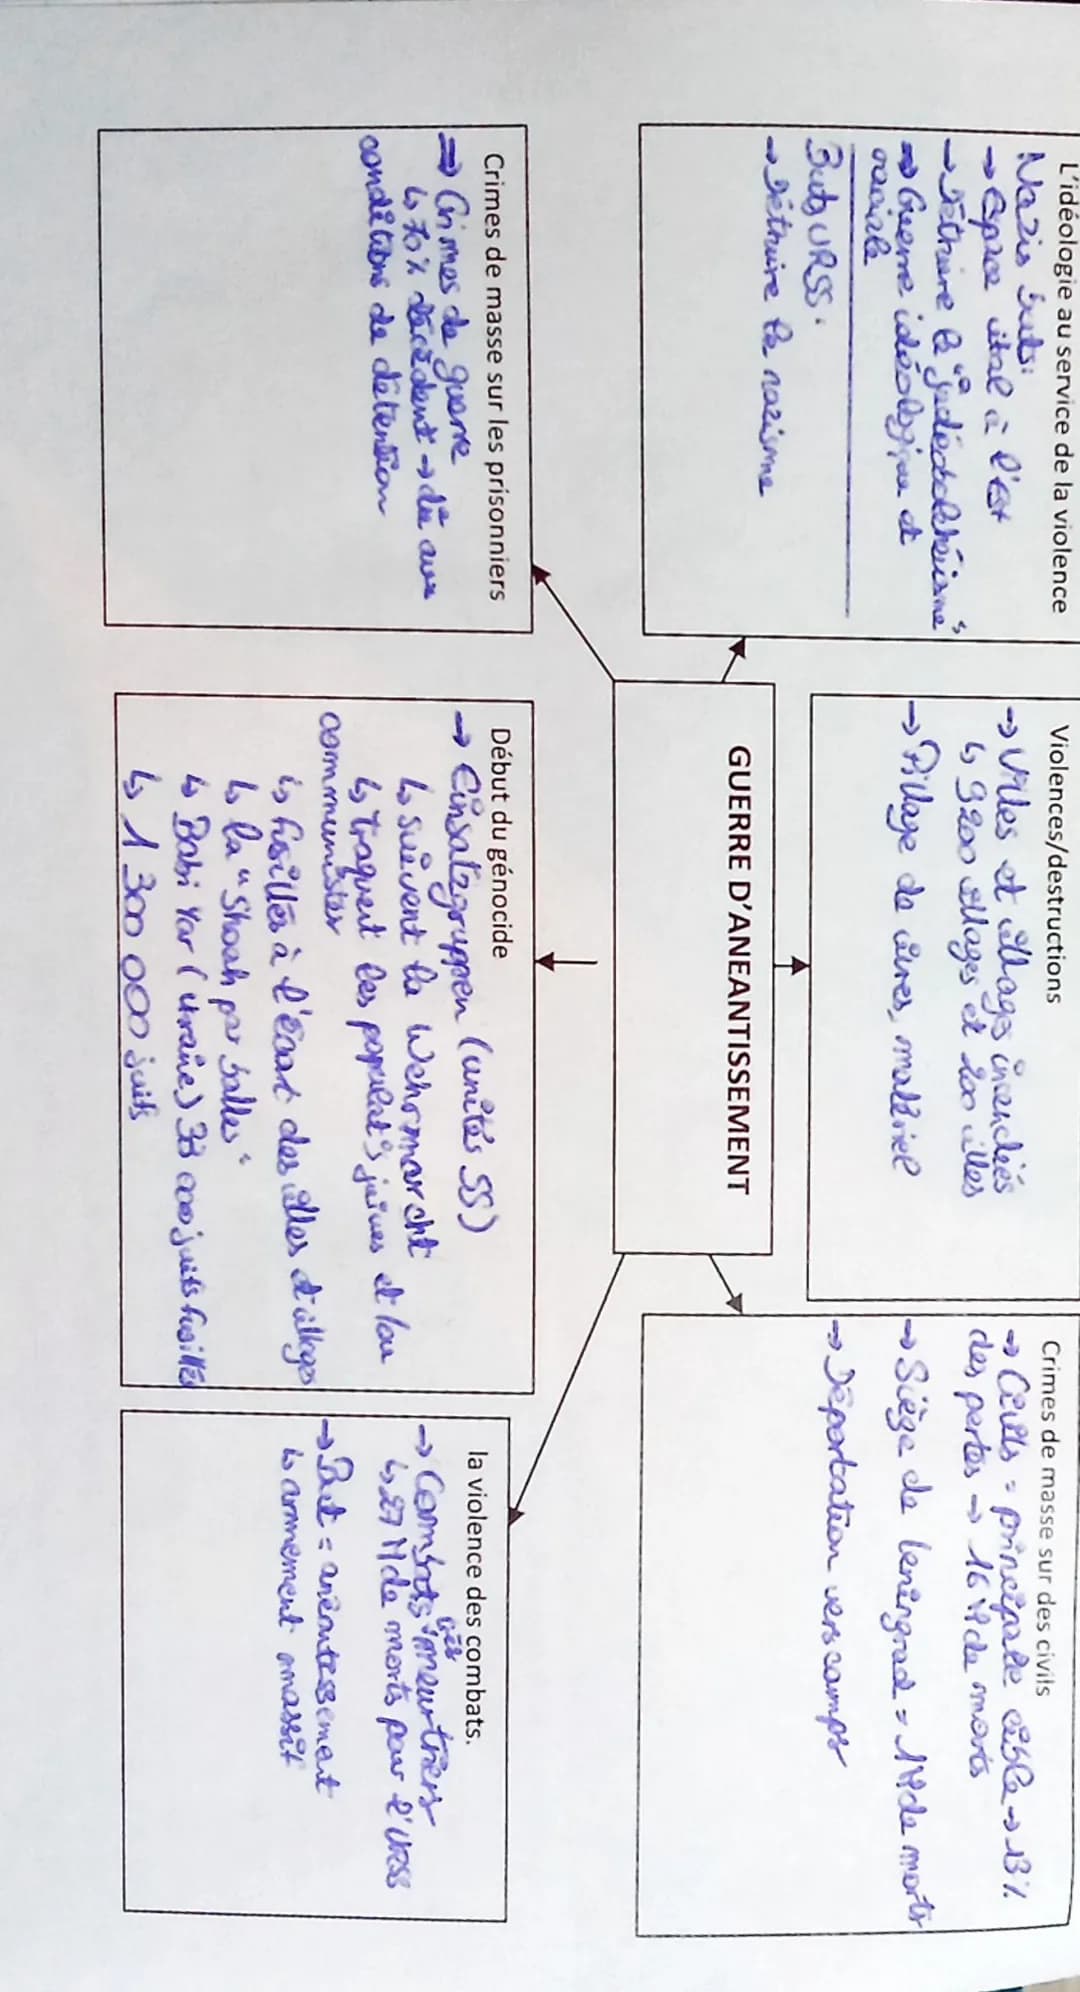 L'idéologie au service de la violence
Nazis buts:
→ Espace vital à l'Est
→ Détruire le "judéobolchéisme"
→ Guerre idéologique et
raciale
Buts URSS:
→ Détruire le nazisme
Violences/destructions
→ Villes et villages incendiés
↳ 9200 villages et 200 villes
→ Pillage de vivres, matériel
Crimes de masse sur des civils
→ Civils = principale cible → 13%
des pertes → 16 M de morts
→ Siège de Leningrad = 1 M de morts
→ Déportation vers camps
GUERRE D'ANEANTISSEMENT
Crimes de masse sur les prisonniers
→ Crimes de guerre
↳ 70% décèdent → dû aux
conditions de détention
Début du génocide
→ Einsatzgruppen (unités SS)
↳ suivent la Wehrmarcht
↳ traquent les populat°s juives et
communistes
↳ fusillés à l'écart des villes et villages
↳ la "Shoah par balles"
↳ Babi Yar (Ukraine) 33 000 juifs fusillés
↳ 1 300 000 juifs
la violence des combats.
→ Combats très meurtriers
↳ 27 M de morts pour l'URSS
→ But = anéantissement
↳ armement massif